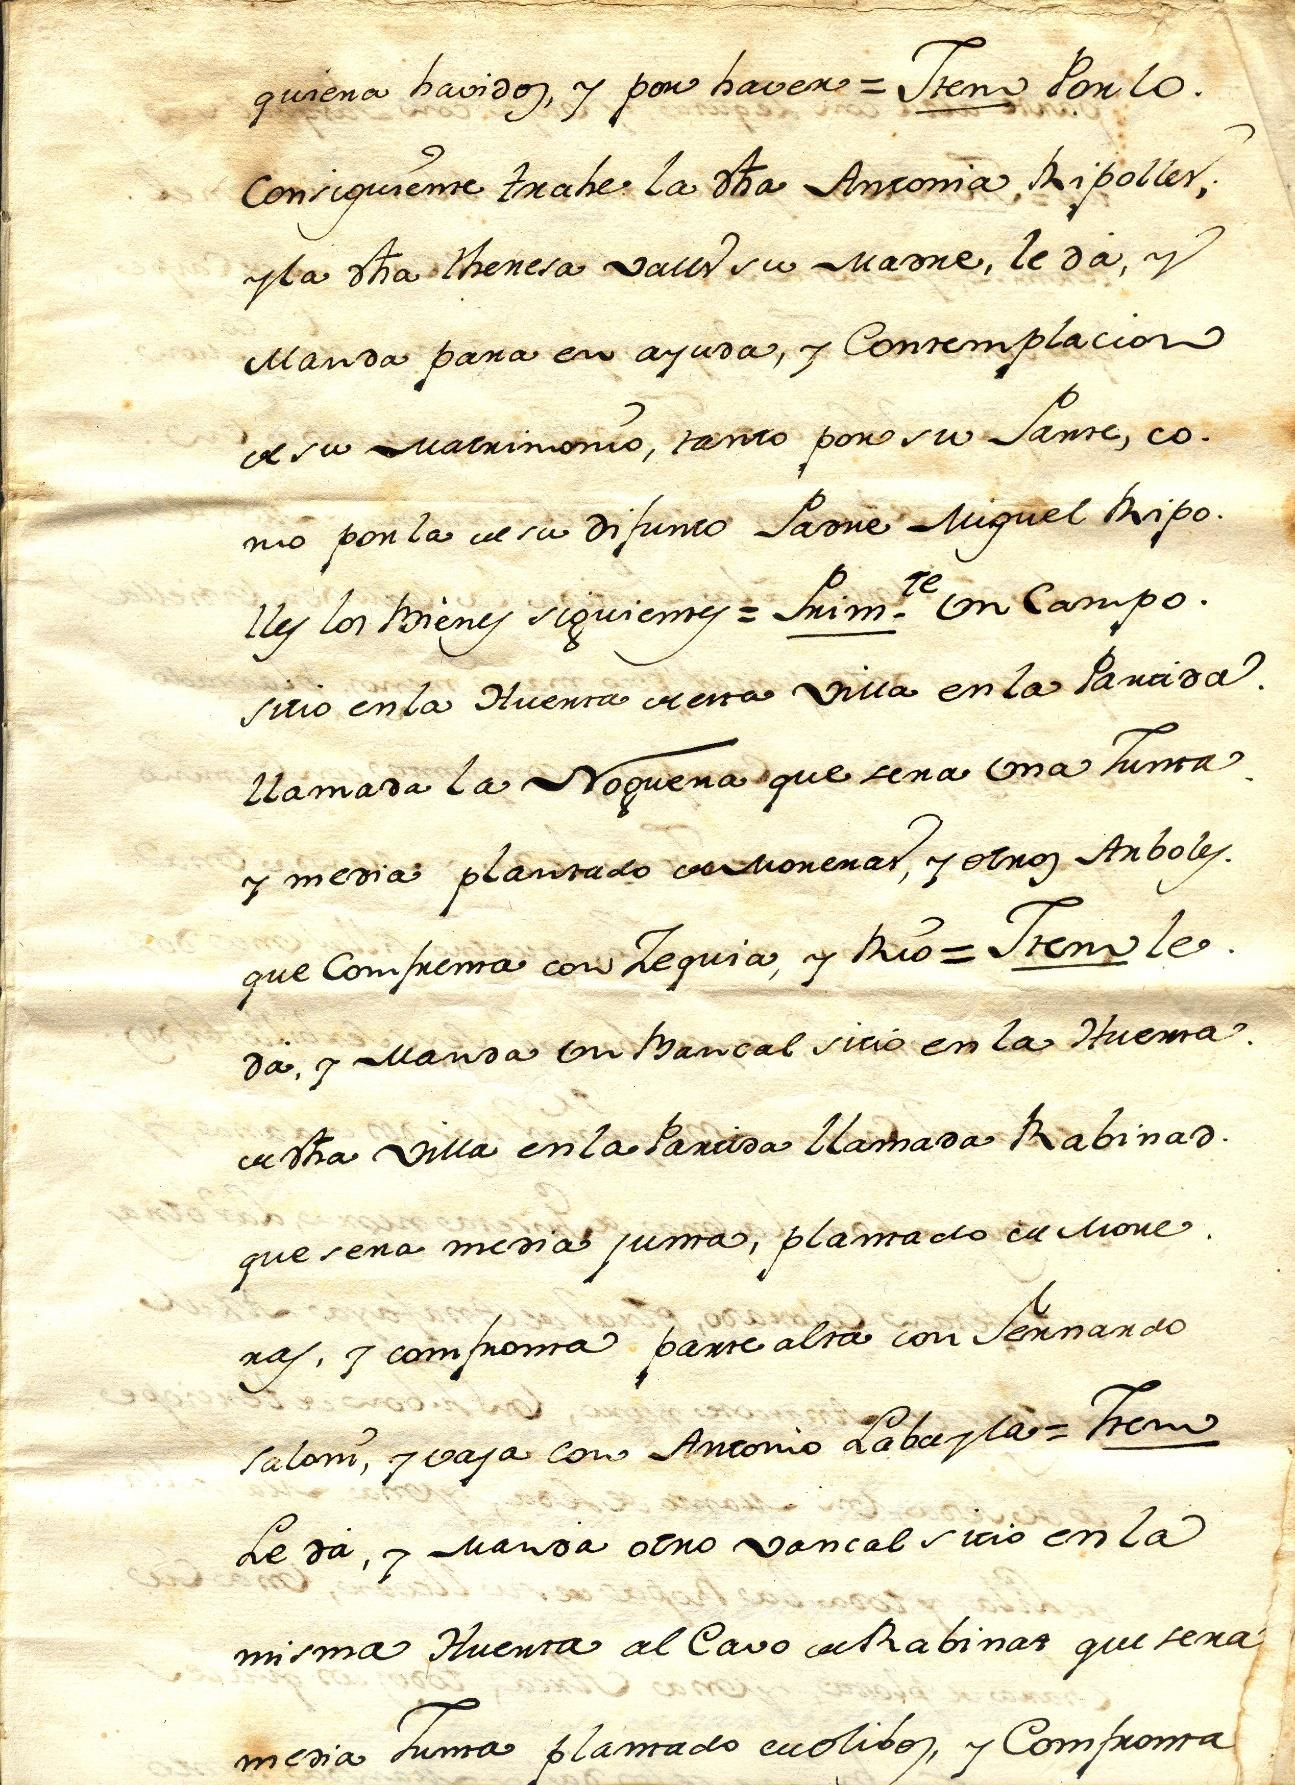 quiera havidos, y por haver = Item Por lo
Consiguiente trahe la dha Antonia Ripolles,
y la dha Theresa Valles su Madre, le dá, y
Manda para en ayuda, y Contemplacion
de su Matrimonio, tanto por su Parte, co-
mo por la de su difunto Padre Miguel Ripo-
lles los Bienes siguientes = Prim.te Un Campo
sitio en la Huerta de esta Villa en la Partida
llamada la Noguera que sera Una Junta
y media plantado de Moreras, y otros Arboles
que Comfrenta con Zequia, y Rio = Item le
dá, y Manda Un Bancal sitio en la Huerta
de dha Villa en la Partida llamada Rabinad
que sera media junta, plantado de More-
ras, y comfronta parte alta con Fernando
Salom, y vaja con Antonio Labayla = Item
Le dá, y Manda otro vancal sitio en la
misma Huerta al Cavo de Rabinat que sera
media Junta plantado de olibos, y Comfronta